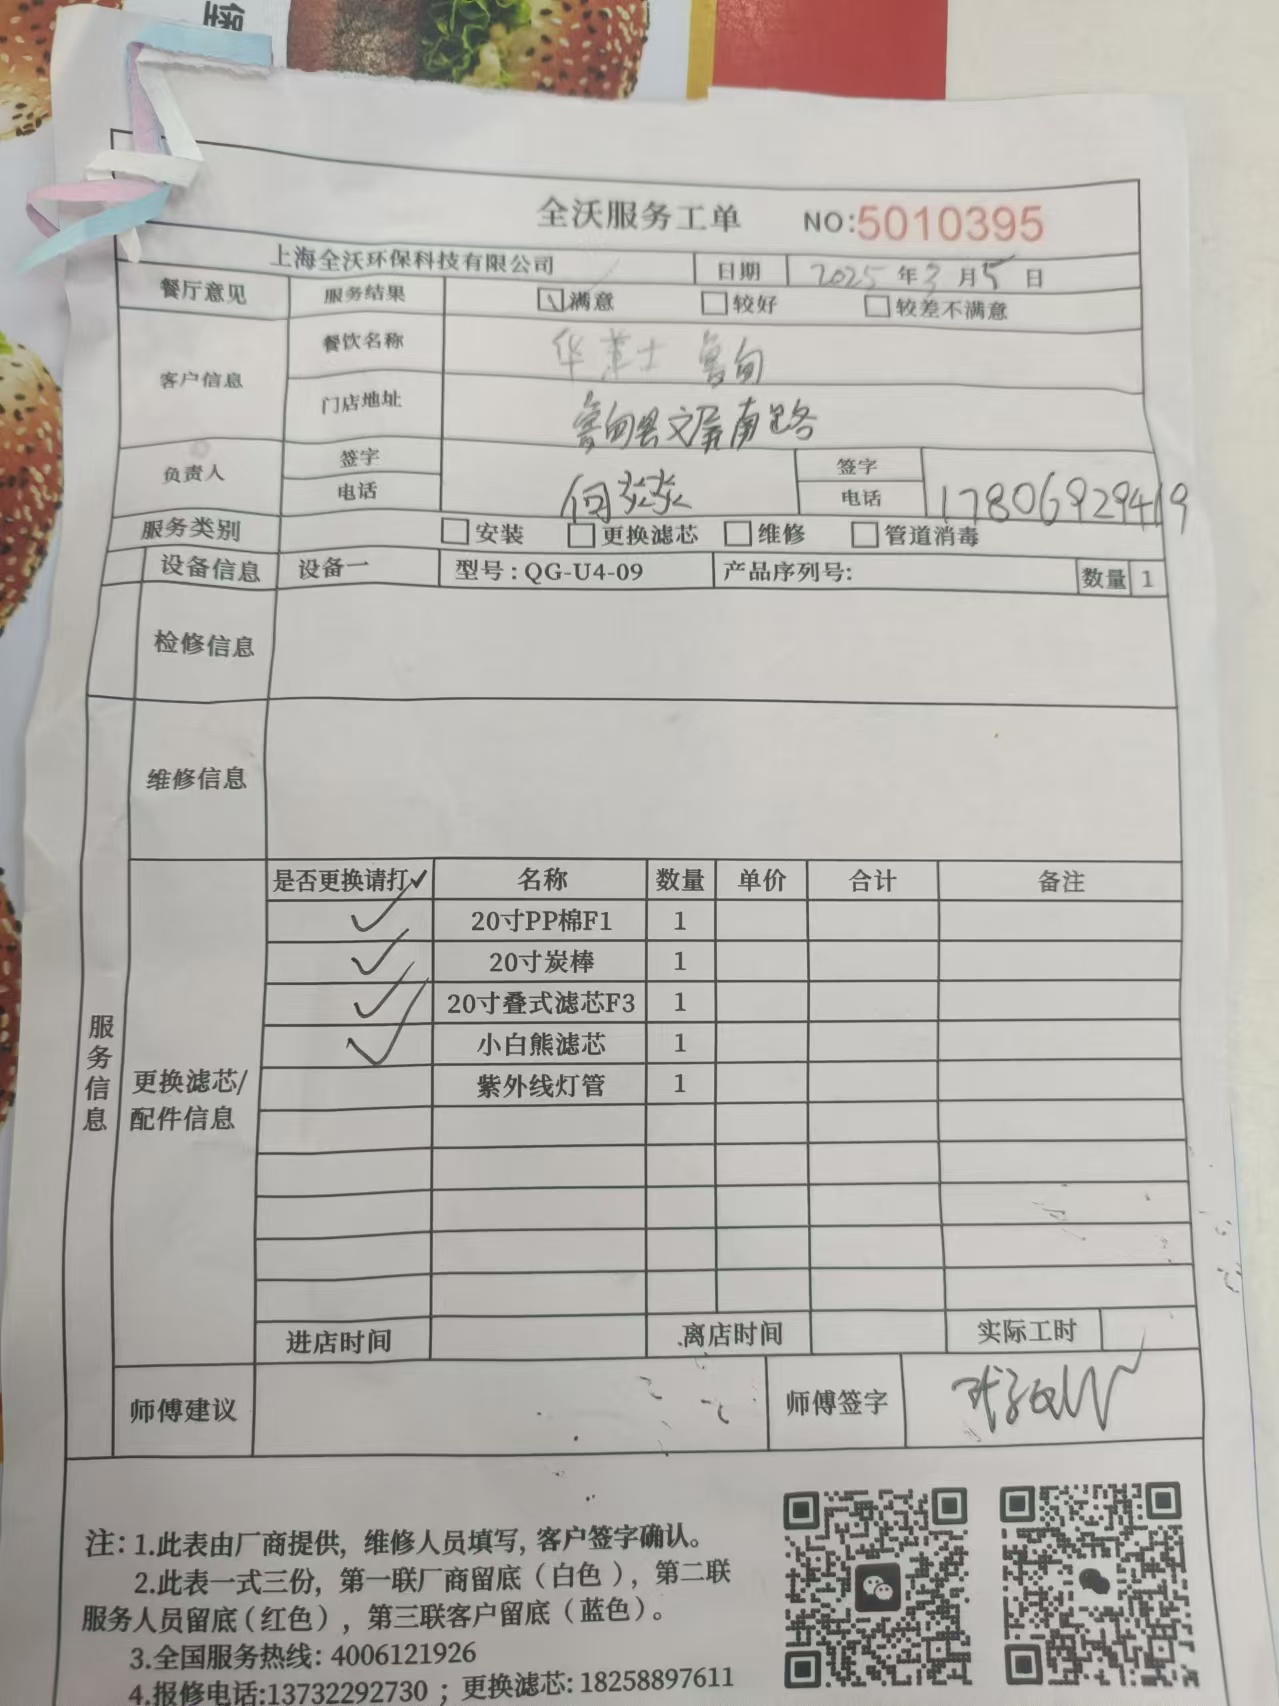 堡
全沃服务工单 NO:5010395
上海全沃环保科技有限公司 日期 2025年3月5日
餐厅意见 服务结果 满意 较好 较差不满意
客户信息 餐饮名称 华莱士 鲁甸
门店地址 鲁甸县文屏南路
负责人 签字 签字
电话 何焱焱 电话 17806929419
服务类别 安装 更换滤芯 维修 管道消毒
设备信息 设备一 型号:QG-U4-09 产品序列号: 数量 1
检修信息
维修信息
是否更换请打✓ 名称 数量 单价 合计 备注
✓ 20寸PP棉F1 1
✓ 20寸炭棒 1
✓ 20寸叠式滤芯F3 1
✓ 小白熊滤芯 1
紫外线灯管 1
服务信息
更换滤芯/
配件信息
进店时间 离店时间 实际工时
师傅建议 师傅签字
注: 1.此表由厂商提供, 维修人员填写, 客户签字确认。
2.此表一式三份, 第一联厂商留底(白色), 第二联
服务人员留底(红色), 第三联客户留底(蓝色)。
3.全国服务热线: 4006121926
4.报修电话:13732292730 ; 更换滤芯: 18258897611